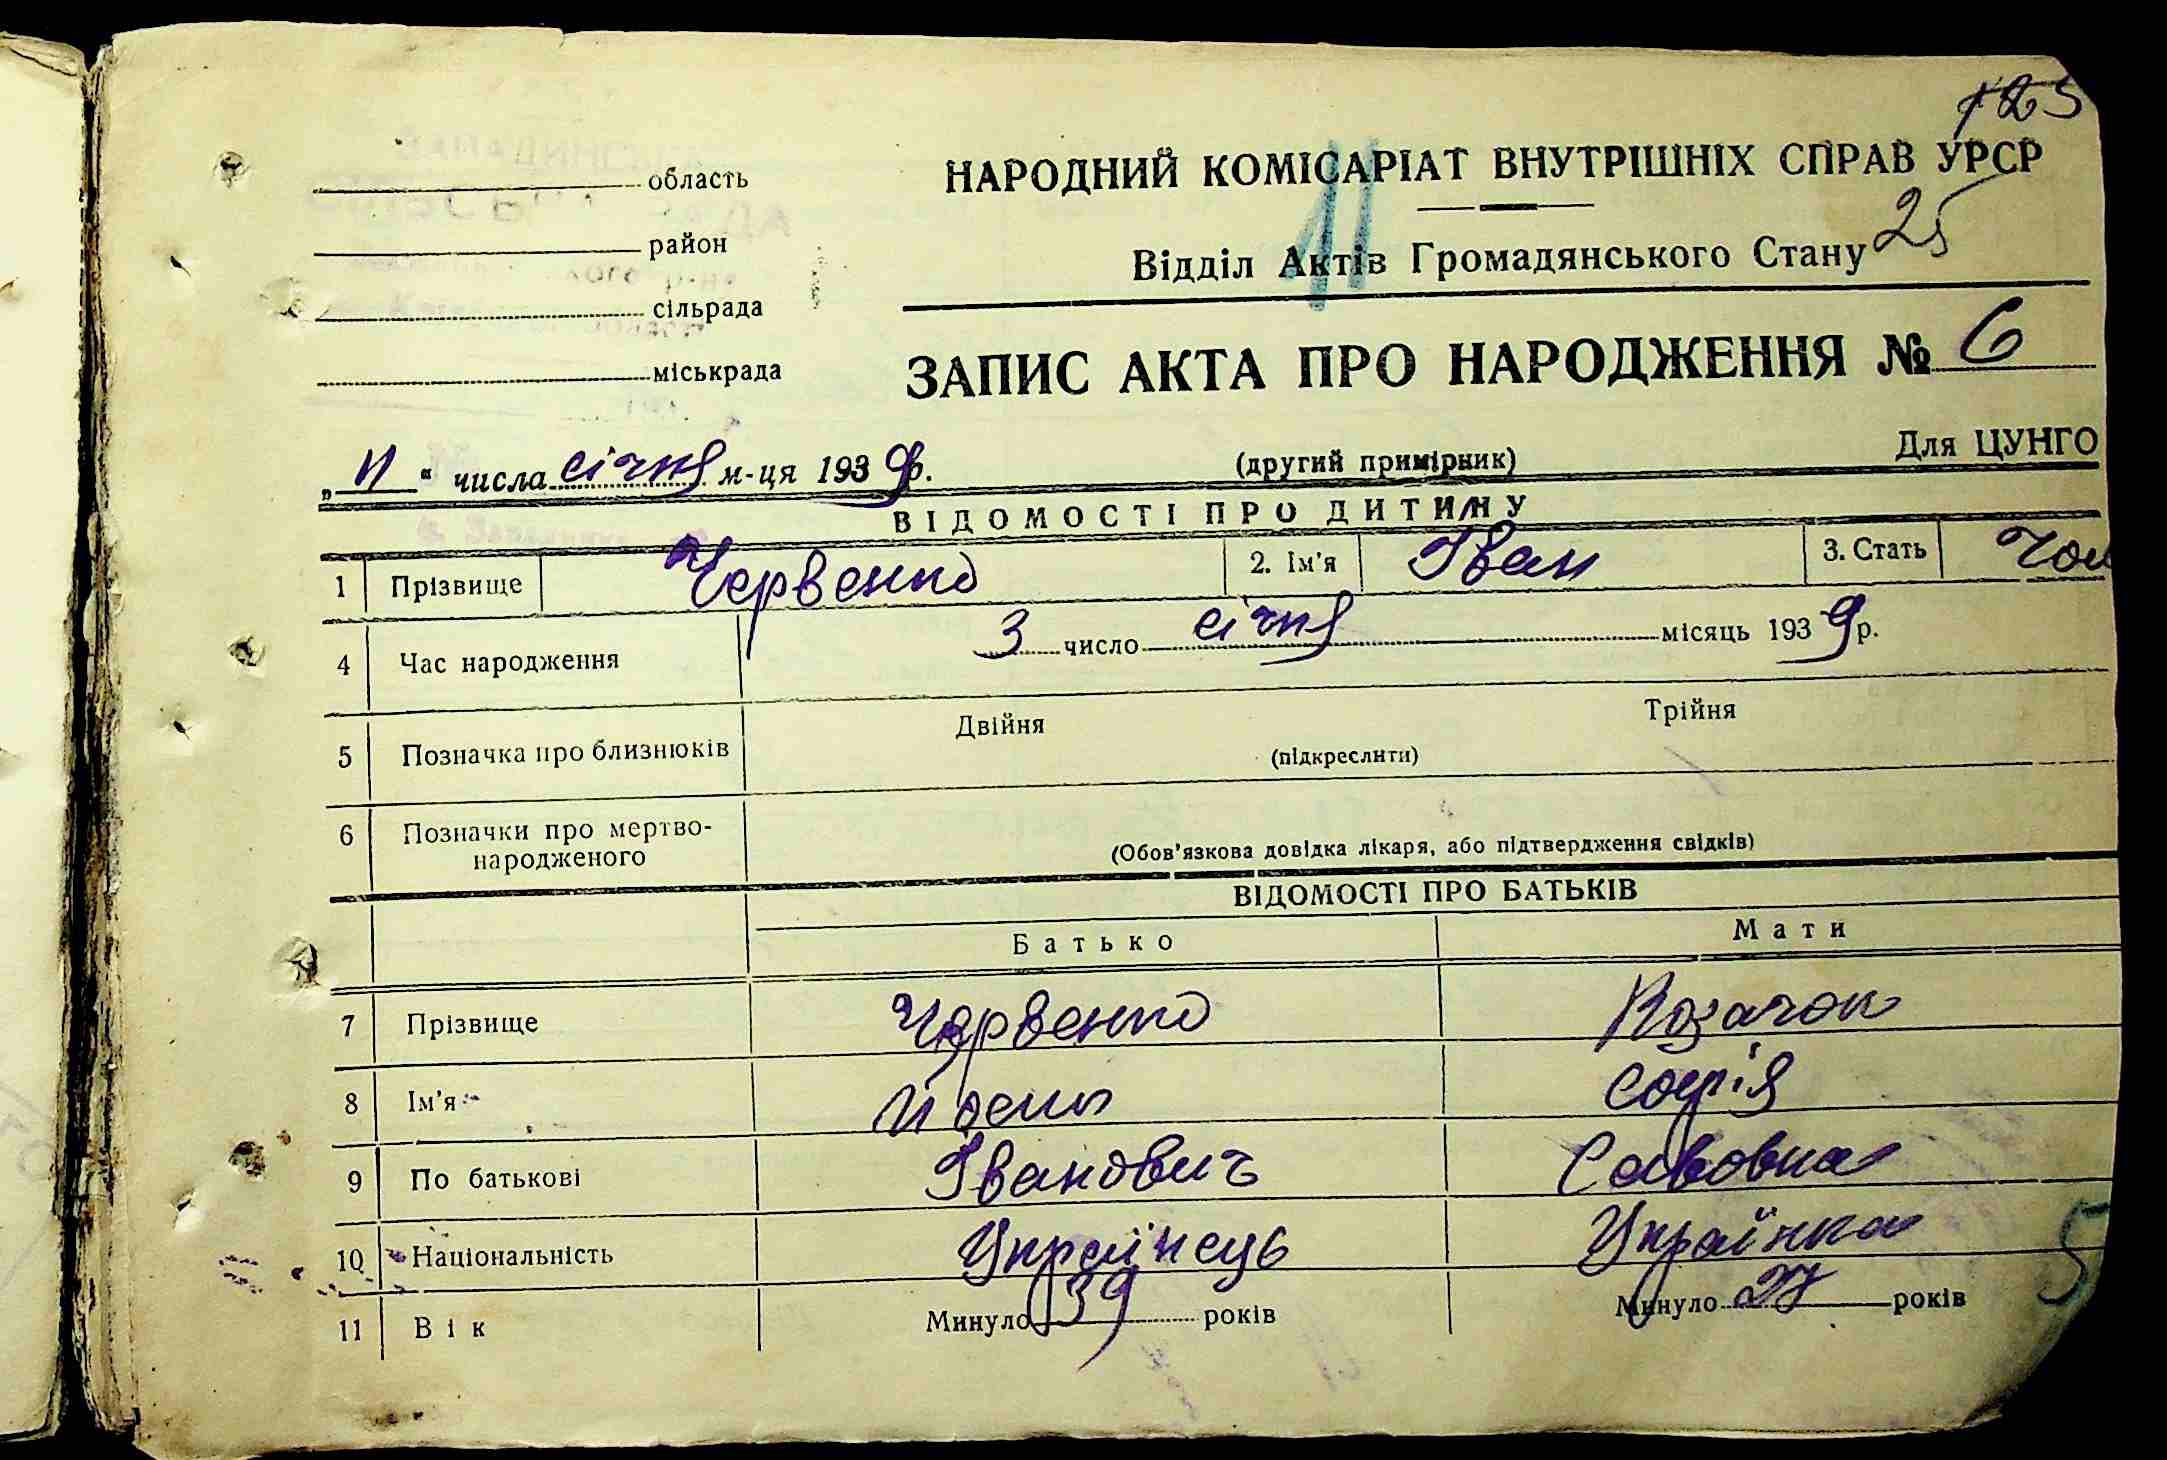 125
НАРОДНИЙ КОМІСАРІАТ ВНУТРІШНІХ СПРАВ УРСР
область
25
район
Відділ Актів Громадянського Стану
11
сільрада
міськрада
ЗАПИС АКТА ПРО НАРОДЖЕННЯ № 6
„ 11 “ числа січня м-ця 1939 р.
(другий примірник)
Для ЦУНГО
ВІДОМОСТІ ПРО ДИТИНУ
1 Прізвище Червенко 2. Ім'я Іван 3. Стать Чол
4 Час народження 3 число січня місяць 1939 р.
5 Позначка про близнюків Двійня Трійня
(підкреслити)
6 Позначки про мертво-
народженого
(Обов'язкова довідка лікаря, або підтвердження свідків)
ВІДОМОСТІ ПРО БАТЬКІВ
Батько Мати
7 Прізвище Червенко Козачок
8 Ім'я Йосип Софія
9 По батькові Іванович Савовна
10 Національність Українець Українка
5
11 Вік Минуло 39 років Минуло 27 років